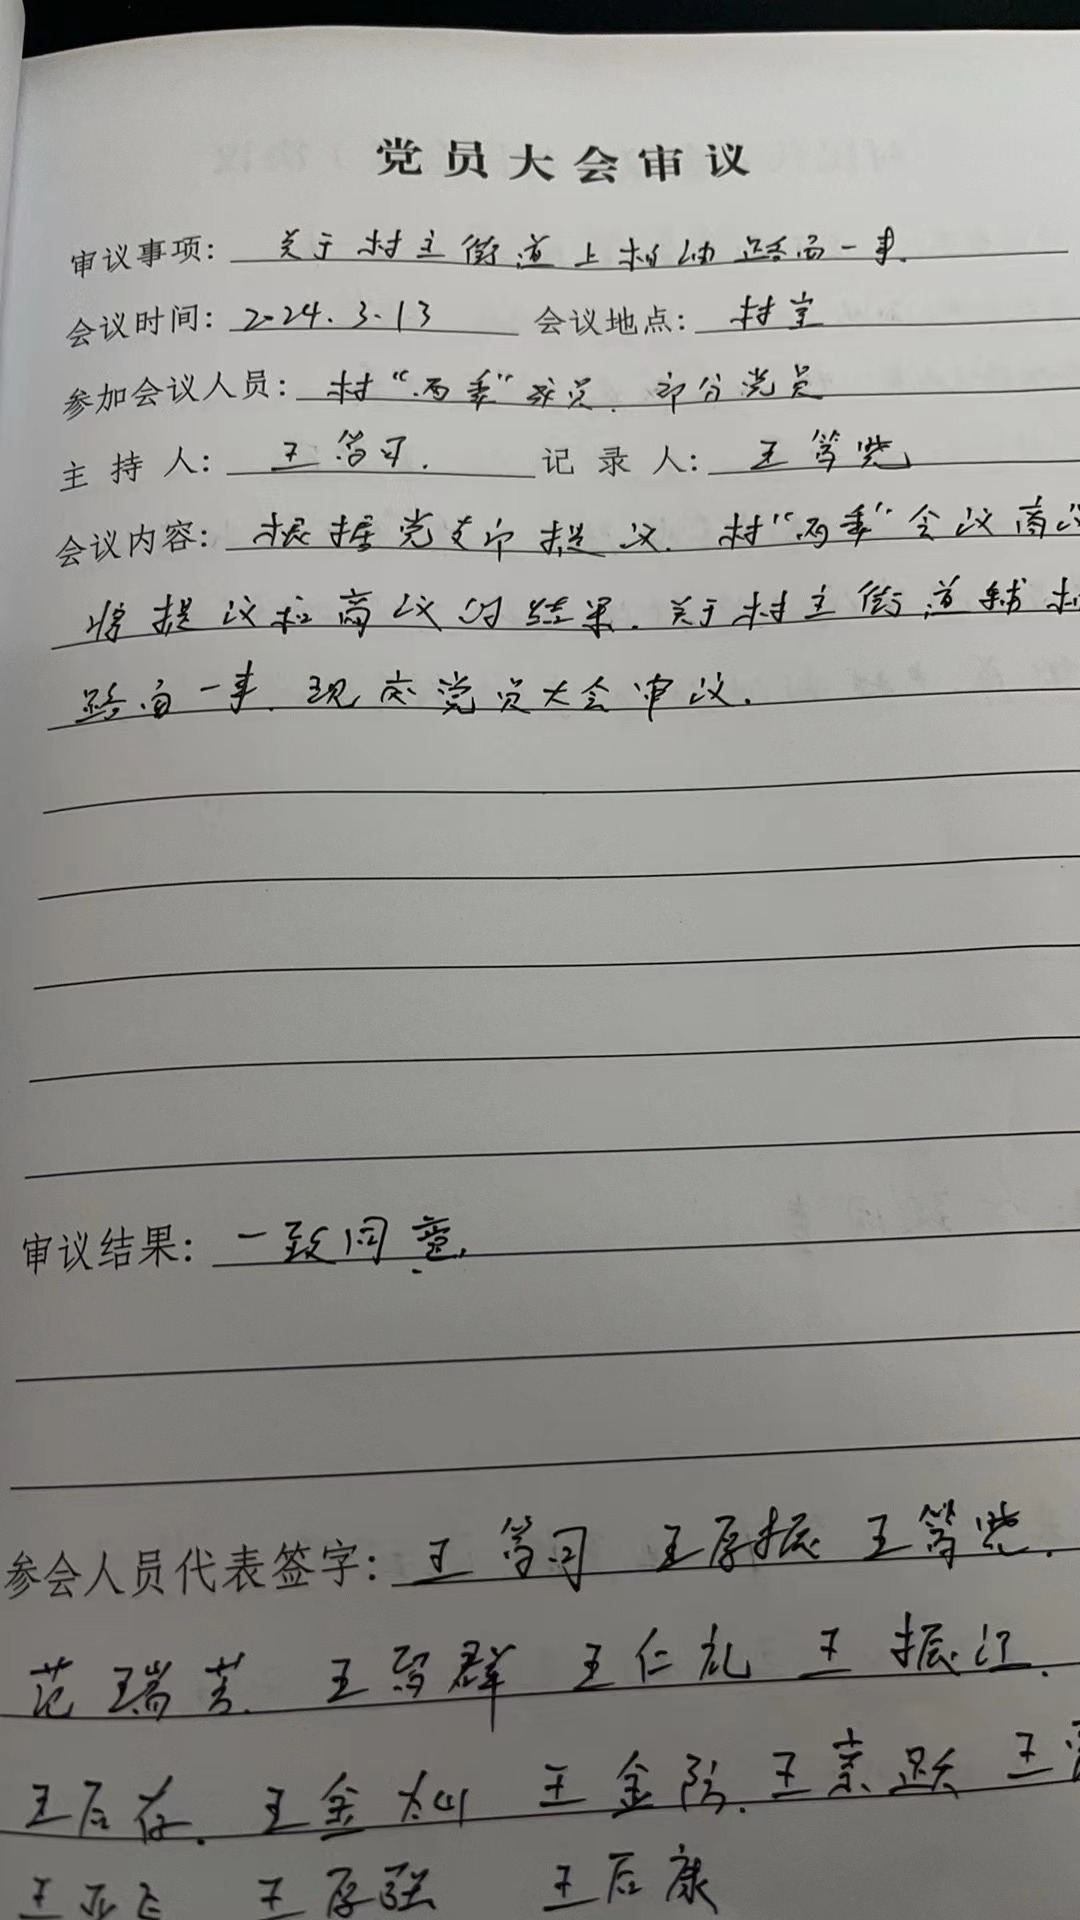 党员大会审议
审议事项: 关于村主街道上柏油路面一事.
会议时间: 2024.3.13 会议地点: 村室
参加会议人员: 村“两委”成员. 部分党员
主持人: 王笃习. 记录人: 王笃党
会议内容: 根据党支部提议. 村“两委”会议商议
将提议和商议的结果. 关于村主街道铺
路面一事. 现交党员大会审议.
审议结果: 一致同意.
参会人员代表签字: 王笃习 王厚振 王笃党.
范瑞芳. 王笃群 王仁礼 王振江.
王后存. 王金灿 王金防. 王京跃 王
王亚飞 王厚强 王后康